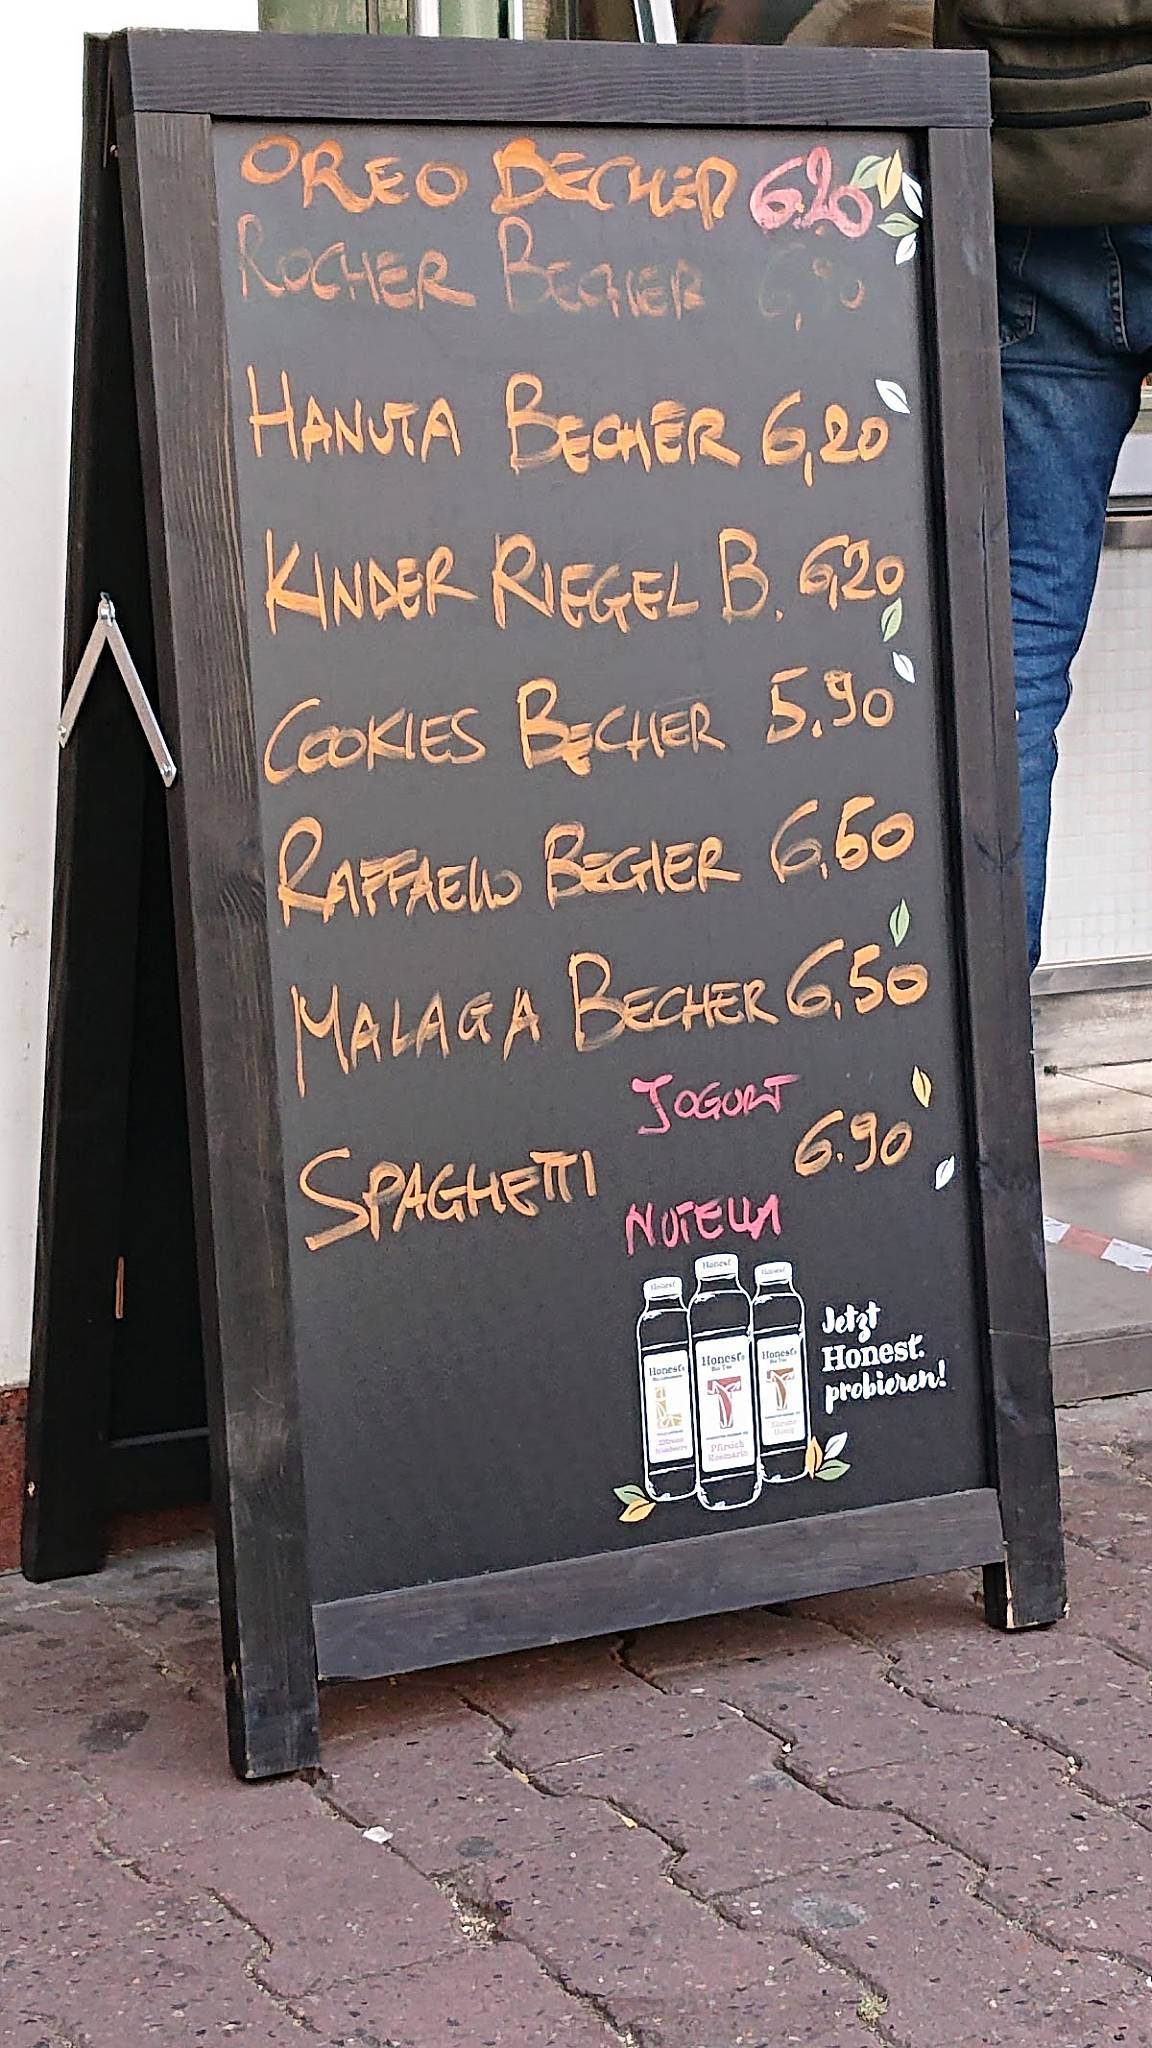 OREO BECHER 6.20
ROCHER BECHER 6,90
HANUTA BECHER 6,20
KINDER RIEGEL B. 6,20
COOKIES BECHER 5.90
RAFFAELLO BECHER 6,50
MALAGA BECHER 6,50
JOGURT
SPAGHETTI 6.90
NUTELLA
Honest Honest Honest
Jetzt
Honest.
probieren!
Honest's Honest's Honest's
Bio Tee Bio Tee
Pfirsich
Rosmarin
Zitrone
Honig